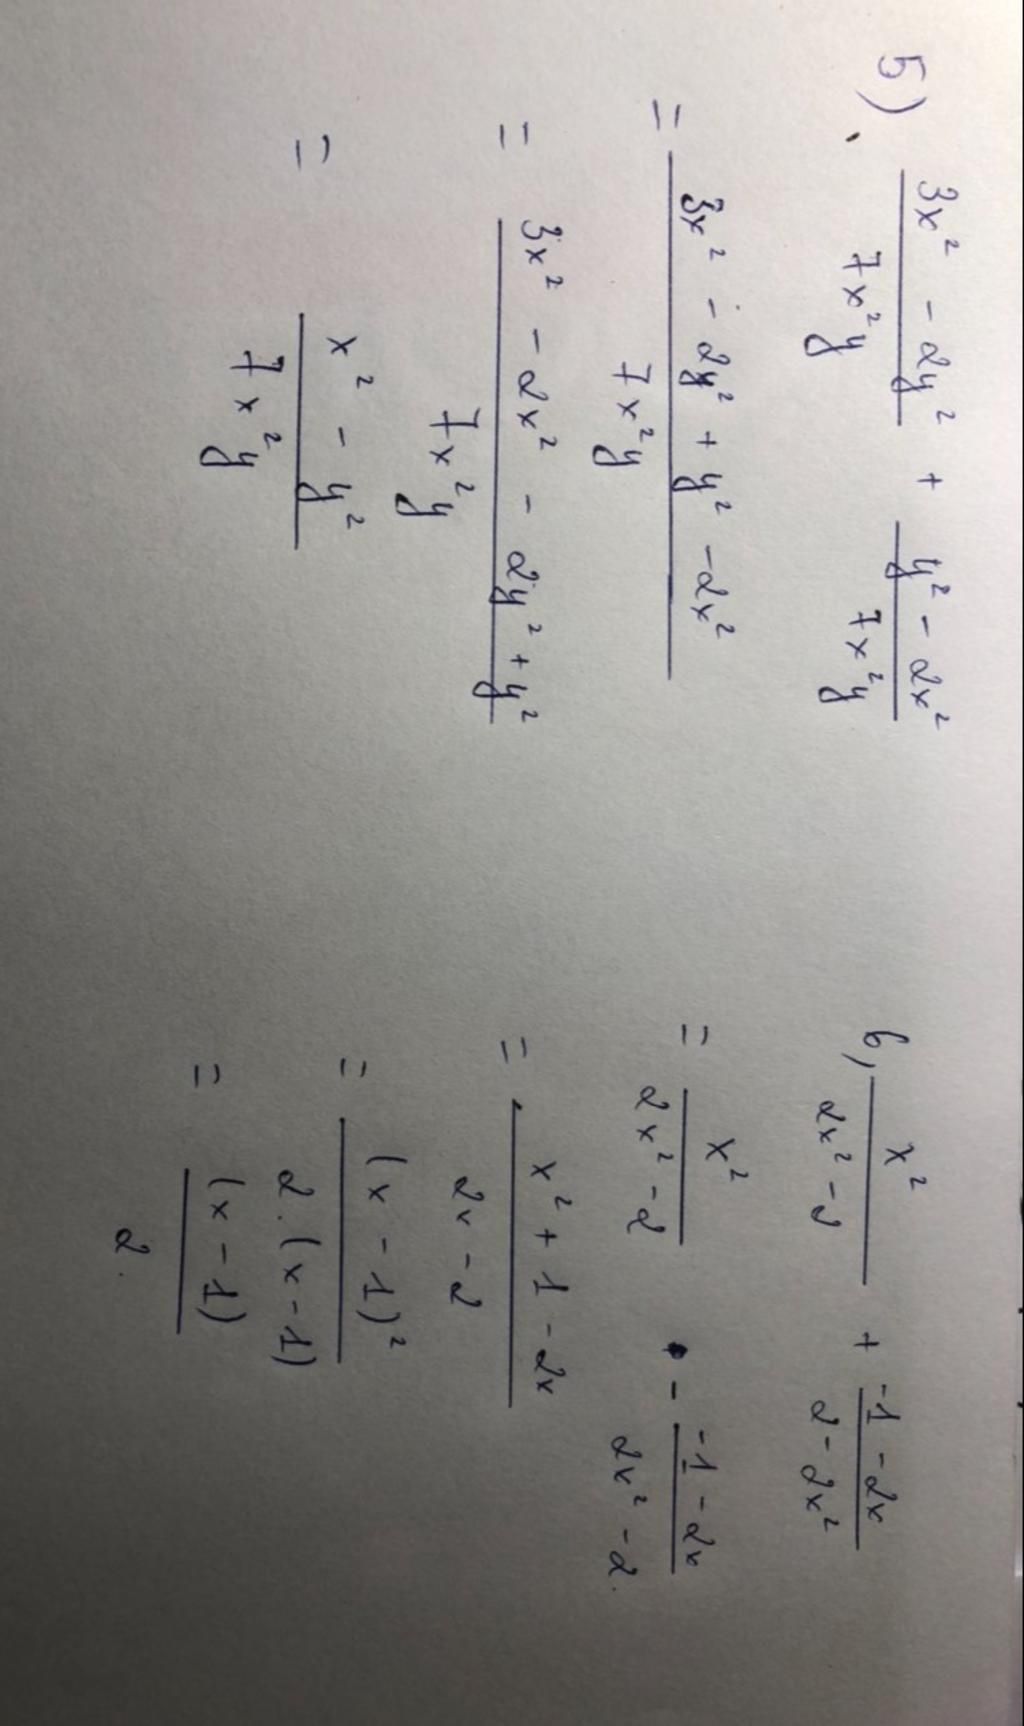 5) (3x² - 2y²)/(7x²y) + (y² - 2x²)/(7x²y)
= (3x² - 2y² + y² - 2x²)/(7x²y)
= (3x² - 2x² - 2y² + y²)/(7x²y)
= (x² - y²)/(7x²y)
6, x²/(2x² - 2) + (-1 - 2x)/(2 - 2x²)
= x²/(2x² - 2) - (-1 - 2x)/(2x² - 2)
= (x² + 1 - 2x)/(2x - 2)
= (x - 1)²/(2.(x - 1))
= (x - 1)/2